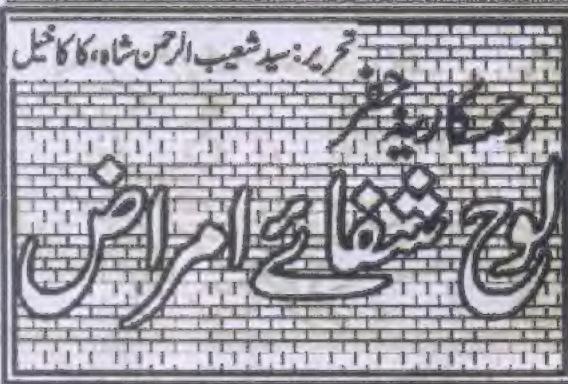 تحریر: سید شعیب الرحمن شاہ، کاکاخیل
رحمکاریہ جفر
لوح شفائے امراض